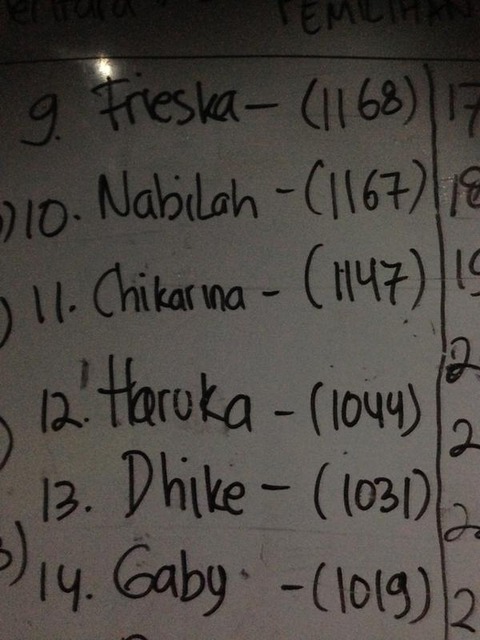 PEMILIHAN
9. Frieska - (1168)
10. Nabilah - (1167)
11. Chikarina - (1147)
12. Haruka - (1044)
13. Dhike - (1031)
14. Gaby - (1019)
17
18